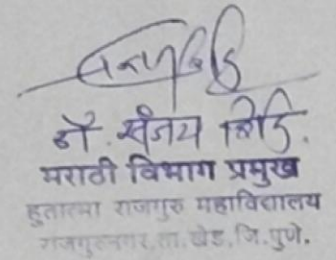 डॉ. संजय शिंदे.
मराठी विभाग प्रमुख
हुतात्मा राजगुरु महाविद्यालय
राजगुरुनगर, ता. खेड, जि. पुणे.